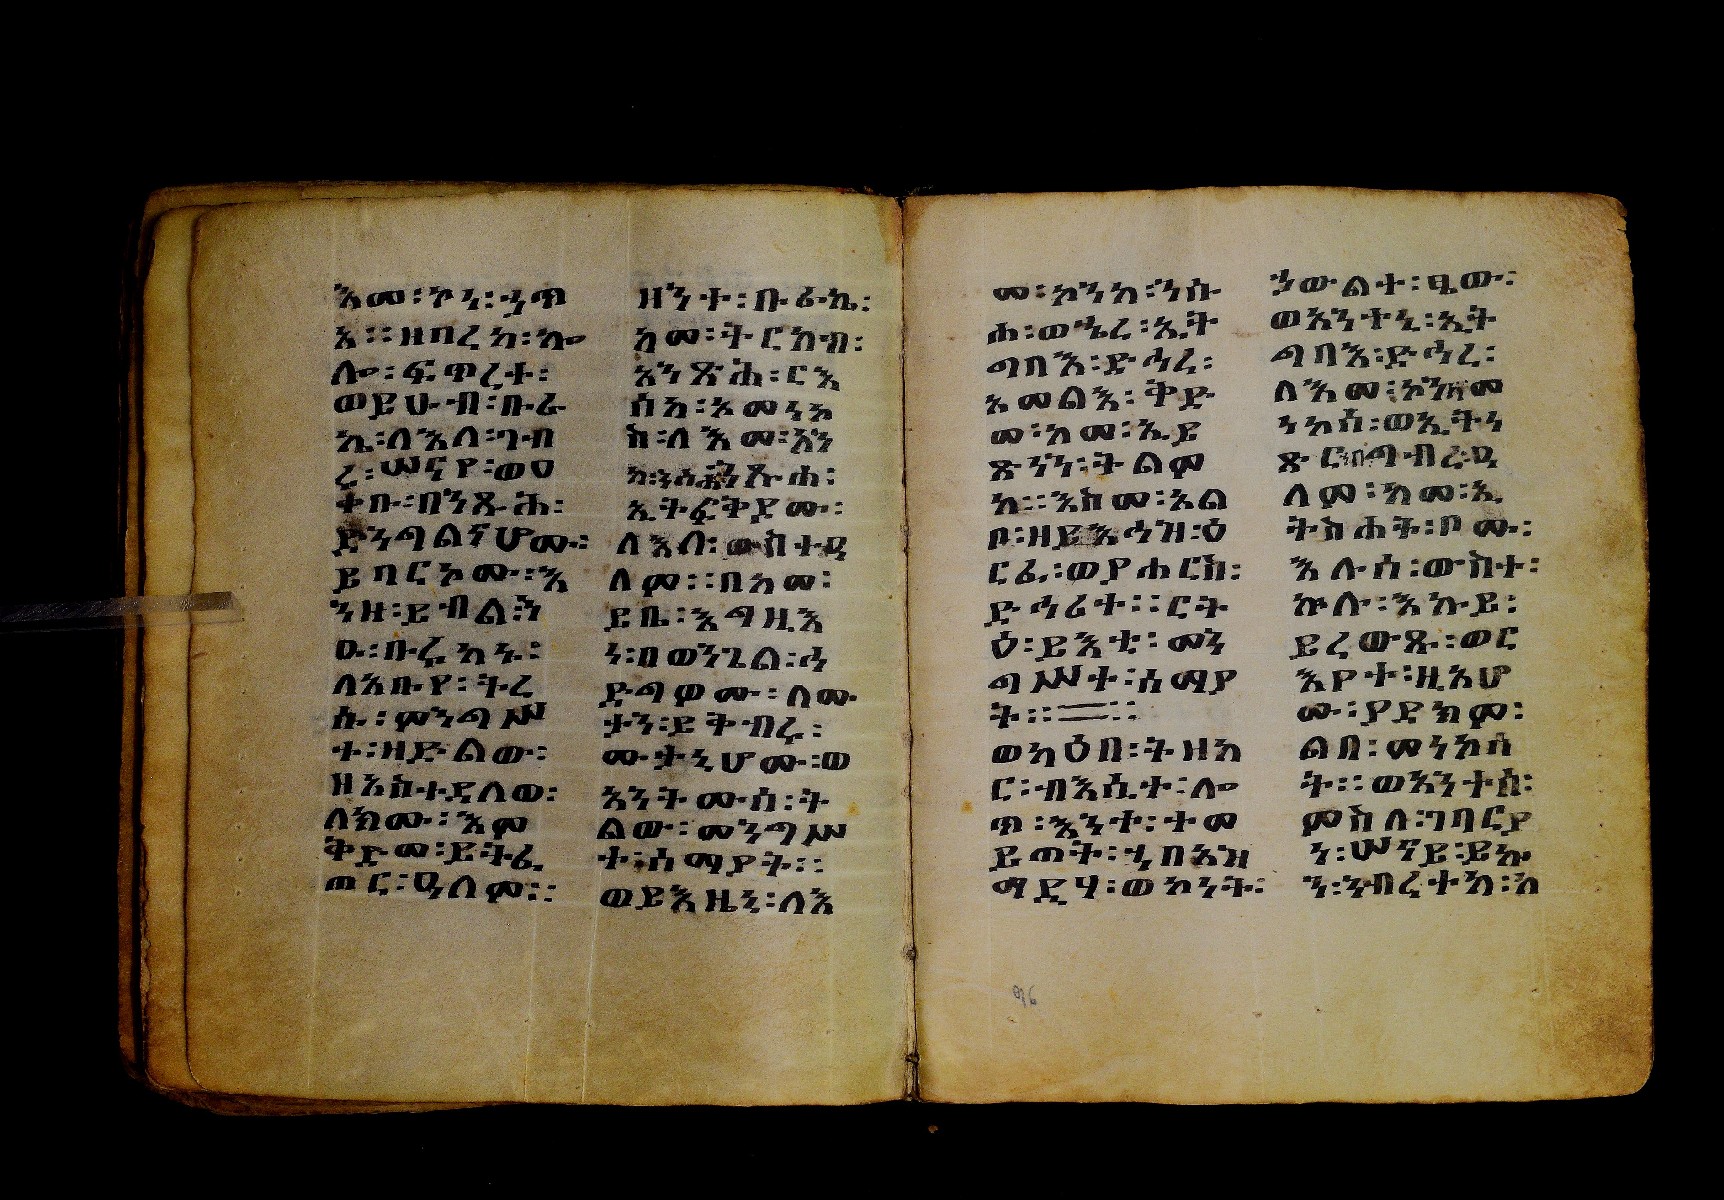 እመ፡ኮነ፡ኃጥ
እ፡፡ዘበረከ፡ኵ
ሎ፡ፍጥረተ፡
ወይሁብ፡ቡራ
ኬ፡ለእለ፡ገብ
ረ፡ሠናየ፡ወዐ
ቀቡ፡በንጹሕ፡
ድንግልናሆሙ፡
ይባርኮሙ፡እ
ንዘ፡ይብል፡ን
ዑ፡ቡሩካኑ፡
ለአቡየ፡ትረ
ሱ፡ምንግሥ
ተ፡ዘድልው፡
ዘአስተዳለወ፡
ለክሙ፡እም
ቅድመ፡ይትፈ
ጠር፡ዓለም፡፡
ዘንተ፡ቡራኬ፡
አመ፡ትርከብ፡
አንጽሕ፡ርእ
ሰከ፡እመነኮ
ስ፡ለእመ፡አን
ኢትፍቅድሙ፡
ለእለ፡ውስተዓ
ለም፡፡በከመ፡
ይቤ፡እግዚእ
ነ፡በወንጌል፡ኅ
ድግዎሙ፡ለሙ
ታን፡ይቅብሩ፡
ሙታኒሆሙ፡ወ
አንትሙሰ፡ት
ልው፡መንግሥ
ተ፡ሰማያት፡፡
ወይእዜኒ፡ለእ
መ፡ኮንከ፡ንሱ
ሐ፡ወኄረ፡ኢት
ግባእ፡ድኅረ፡
አመልእ፡ቅድ
መ፡ከመ፡ኢይ
ጽንን፡ትልም
ከ፡፡እስመ፡አል
ቦ፡ዘይእኅዝ፡ዕ
ርፈ፡ወያሐርስ፡
ድኅሪተ፡፡ርት
ዕ፡ይእቲ፡መን
ግሥተ፡ሰማያ
ት፡፡══፡፡
ወካዕበ፡ትዘከ
ር፡ብእሲተ፡ሎ
ጥ፡እንተ፡ተመ
ይጠት፡ኀበአዝ
ማዲሃ፡ወኮነት፡
ኃውልተ፡ፄው፡
ወአንተኒ፡ኢት
ግባእ፡ድኅረ፡
ለእመ፡ኮንከመ
ነኮሰ፡ወኢትን
ለም፡ከመ፡ኢ
ትስሐት፡ቦሙ፡
እሉሰ፡ውስተ፡
ኵሉ፡እኩይ፡
ይረውጹ፡ወር
እየተ፡ዚአሆ
ሙ፡ያደክም፡
ልበ፡መነኮሳ
ት፡፡ወአንተሰ፡
ምስለ፡ገባርያ
ን፡ሠናይ፡ይኩ
ን፡ንብረትከ፡ከ